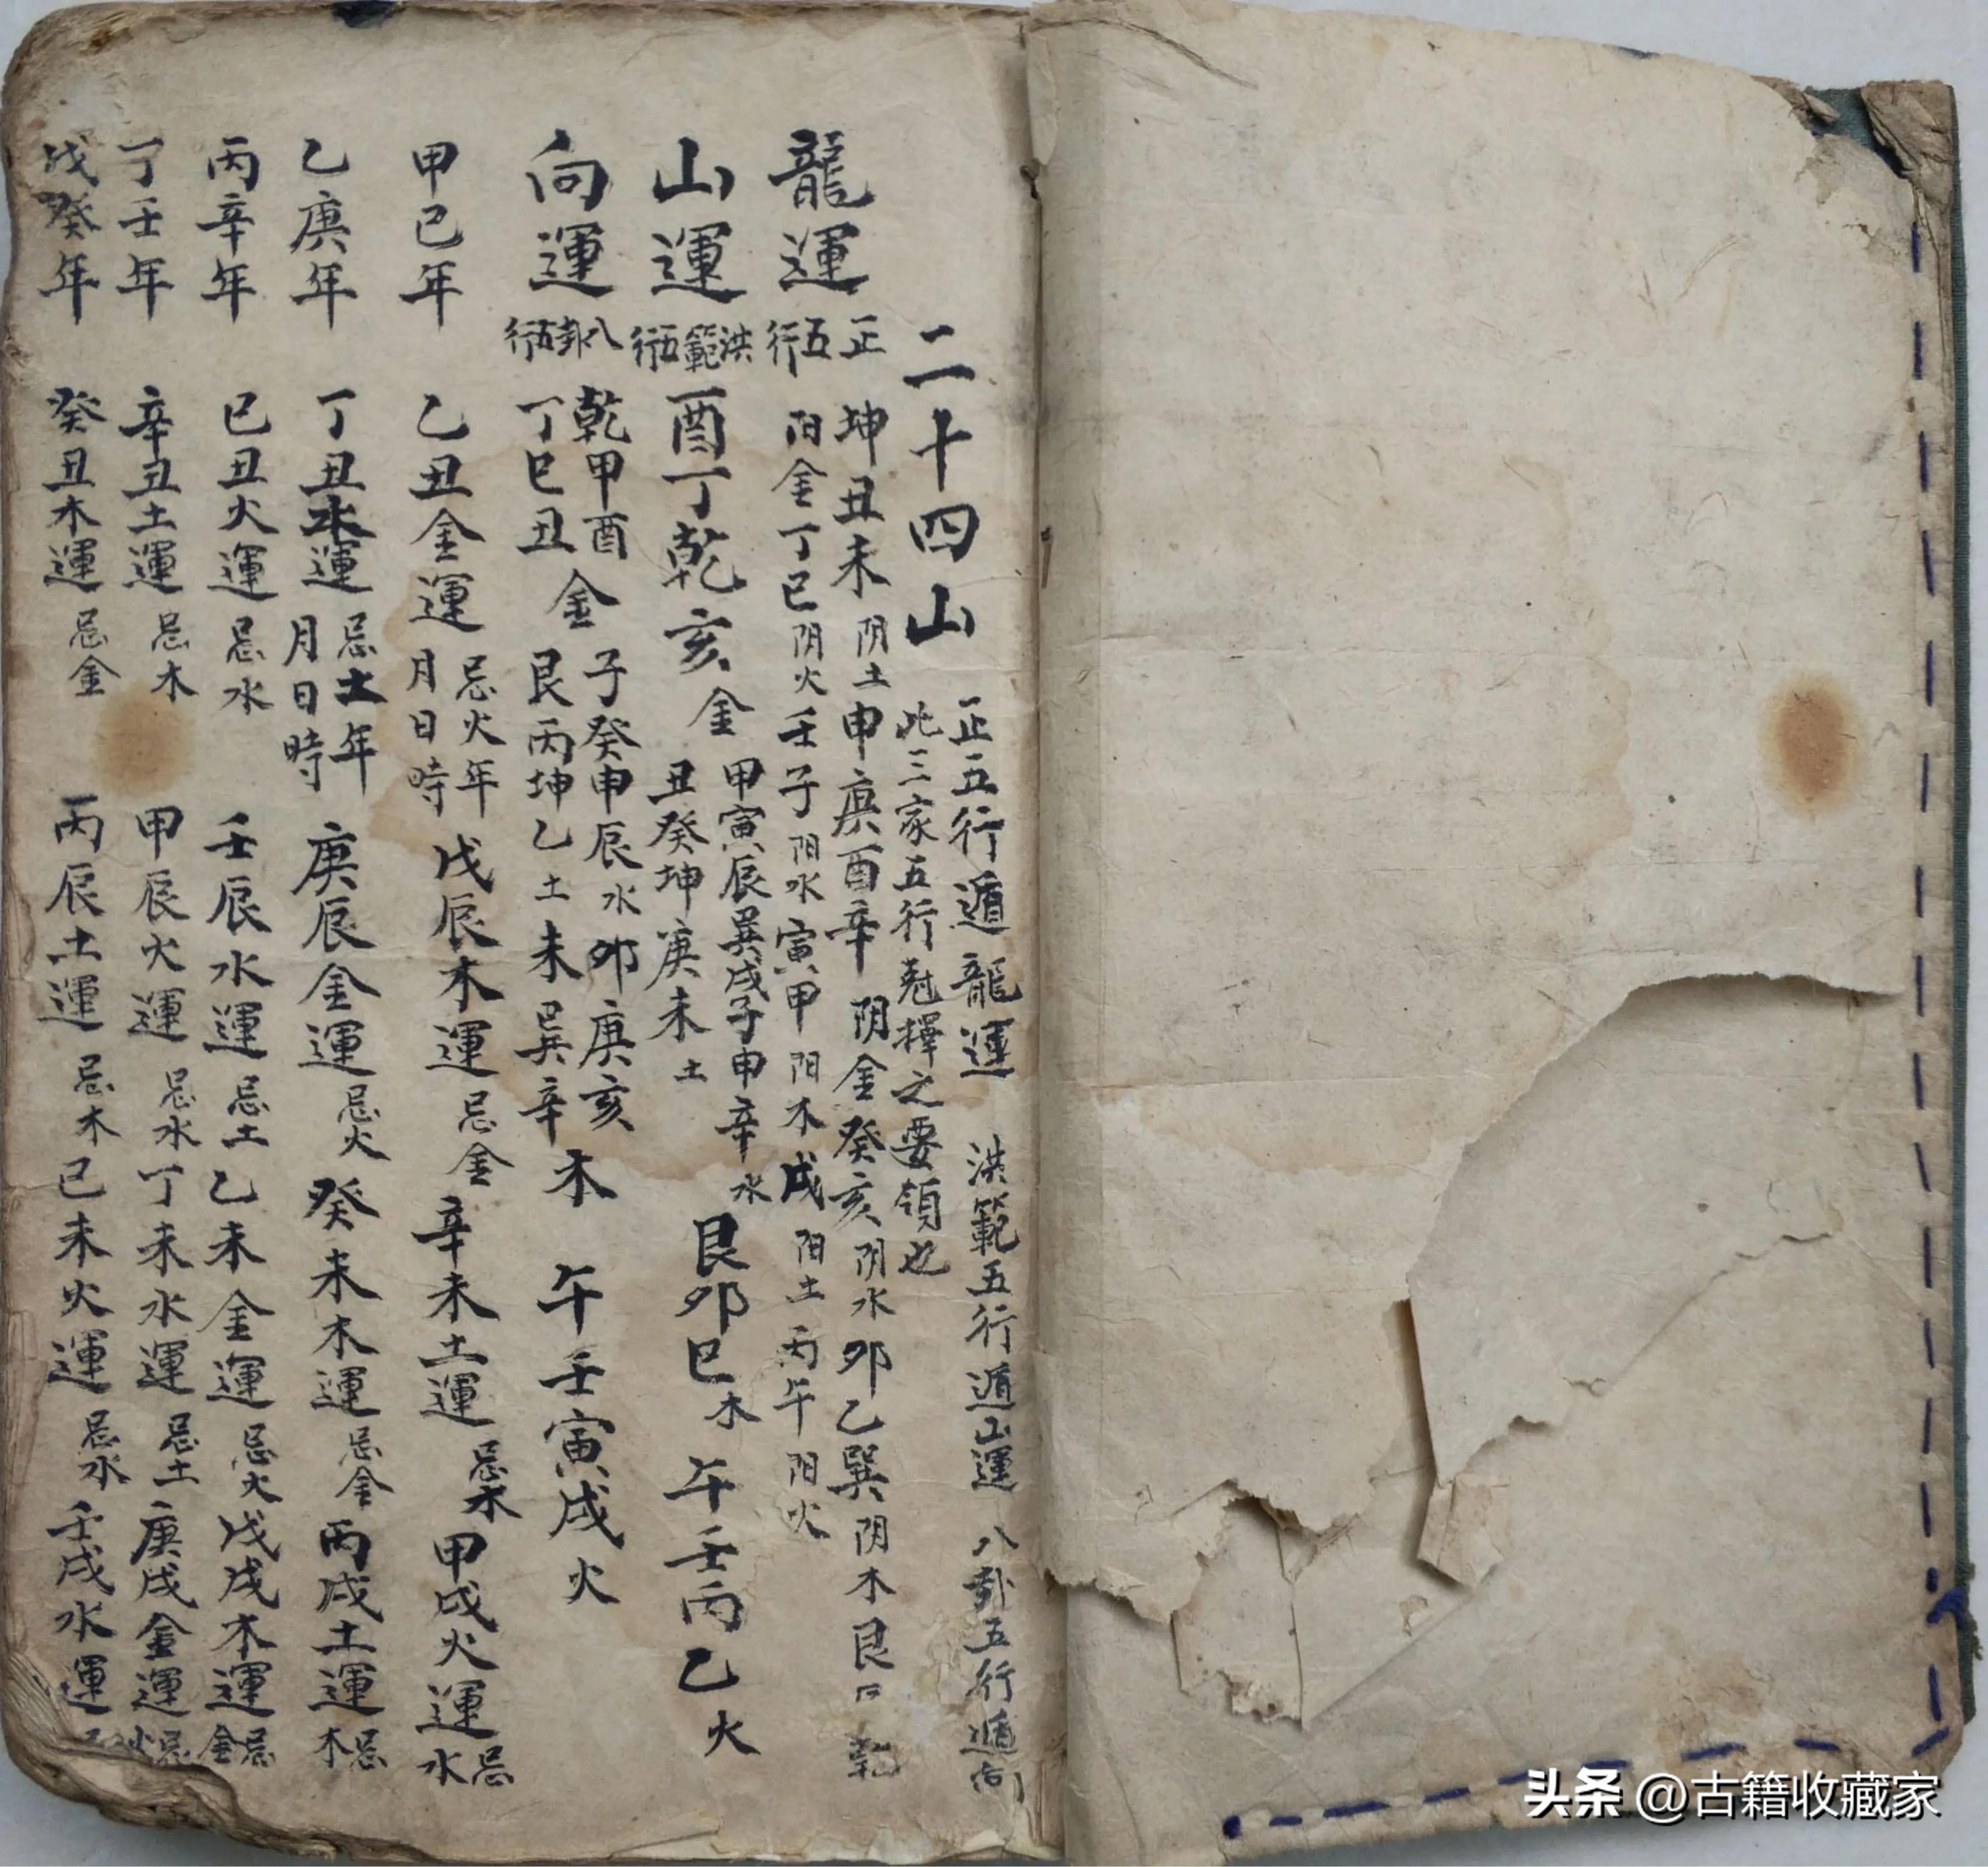 二十四山
正五行遁龍運 洪範五行遁山運 八卦五行遁向
此三家五行尅擇之要領也
龍運
正五行
坤丑未阴土申庚酉辛阴金癸亥阴水卯乙巽阴木艮 乾
阳金丁巳阴火壬子阳水寅甲阳木戌阳土丙午阳火
山運
洪範五行
酉丁乾亥金
甲寅辰巽戌子申辛水
丑癸坤庚未土
艮卯巳木 午壬丙乙火
向運
八卦五行
乾甲酉
丁巳丑
金
子癸申辰水卯庚亥
艮丙坤乙土未巽辛
木 午壬寅戌火
甲己年 乙丑金運 忌火年月日時 戊辰木運 忌金 辛未土運 忌木 甲戌火運 忌水
乙庚年 丁丑水運 忌土年月日時 庚辰金運 忌火 癸未木運 忌金 丙戌土運 忌木
丙辛年 己丑火運 忌水 壬辰水運 忌土 乙未金運 忌火 戊戌木運 忌金
丁壬年 辛丑土運 忌木 甲辰火運 忌水 丁未水運 忌土 庚戌金運 忌火
戊癸年 癸丑木運 忌金 丙辰土運 忌木 己未火運 忌水 壬戌水運
头条 @古籍收藏家